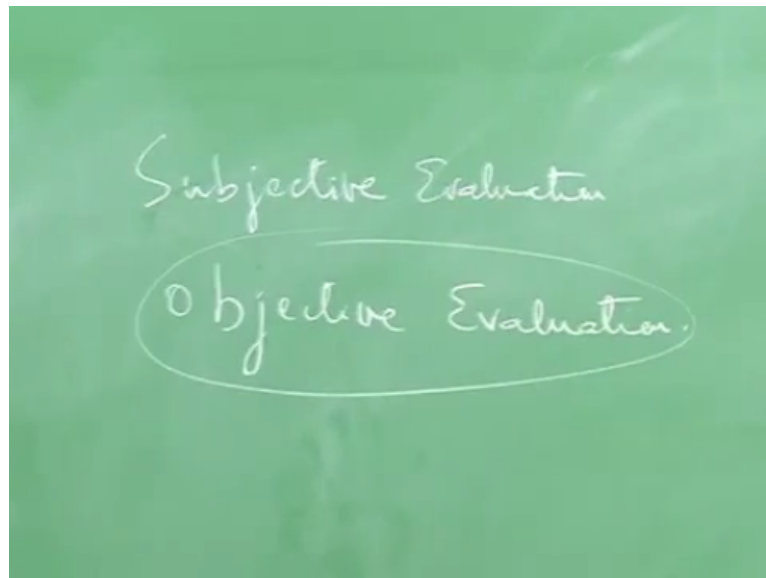 Subjective Evaluation
Objective Evaluation.